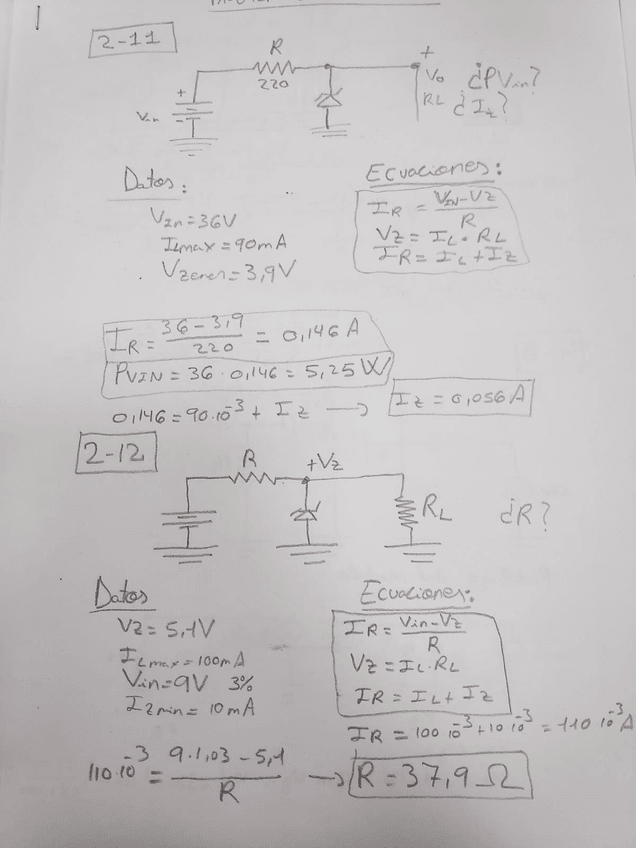 2-11
R
220
+
Vo
RL
¿PVin?
¿Iz?
+
Vin
-
Datos:
VIn=36V
ILmax = 90mA
Vzener= 3,9V
Ecuaciones:
IR = VIN-VZ / R
VZ = IL · RL
IR = IL + IZ
IR = 36-3,9 / 220 = 0,146 A
PVIN = 36 · 0,146 = 5,25 W
0,146 = 90·10^-3 + Iz → Iz = 0,056A
2-12
R
+Vz
RL
¿R?
Datos
VZ = 5,1V
ILmax = 100mA
Vin=9V 3%
Izmin = 10mA
Ecuaciones:
IR = Vin-Vz / R
VZ = IL·RL
IR = IL + Iz
IR = 100 10^-3 + 10 10^-3 = 110 10^-3 A
110·10^-3 = 9·1,03-5,1 / R → R = 37,9 Ω